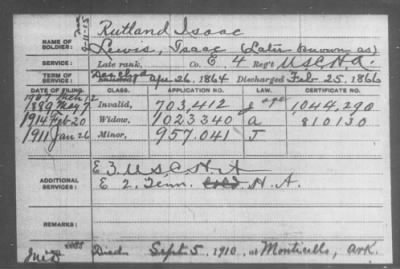 Rutland Isaac
NAME OF SOLDIER: Lewis, Isaac (Later known as)
SERVICE: Late rank, Co. E. 4 Reg't U.S.C.H.A.
TERM OF SERVICE: Enlisted Apr 26, 1864 Discharged Feb 25, 1866
DATE OF FILING. CLASS. APPLICATION NO. LAW. CERTIFICATE NO.
1889 May 7 Invalid, 703,412 1044,290
1914 Feb 20 Widow, 1023,340 a 810130
1911 Jan 26 Minor, 957.041 J
ADDITIONAL SERVICES: E 3. U.S.C.H.A
E 2. Tenn. H.A.
REMARKS:
Died Sept 5, 1910, at Monticello, Ark.